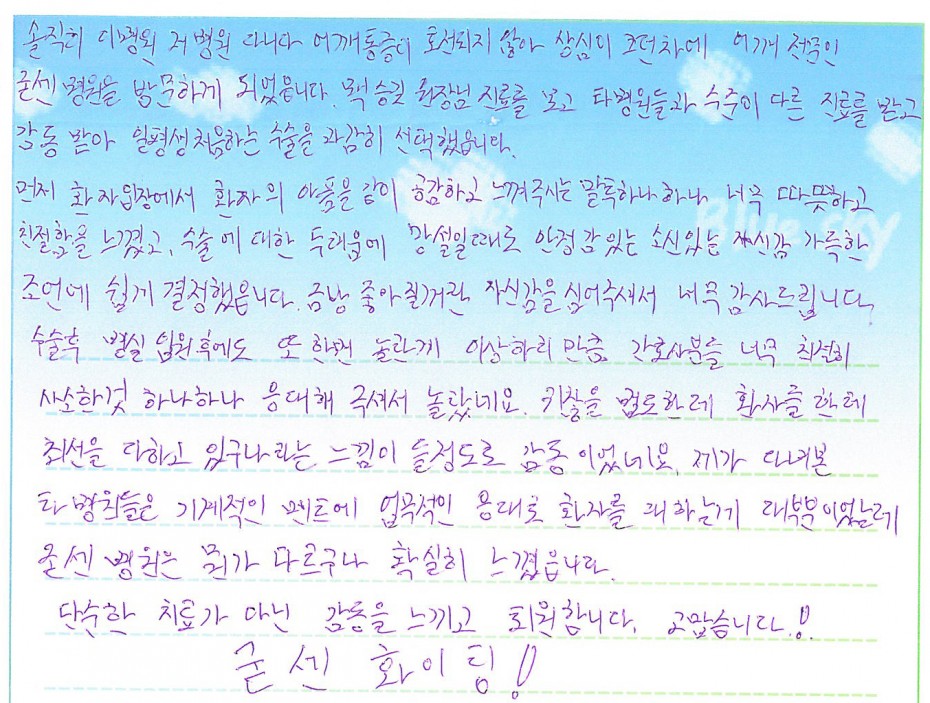 솔직히 이병원 저병원 다니다 어깨통증이 호전되지 않아 상심이 크던차에 어깨 전문인
굳센 병원을 방문하게 되었읍니다. 원장님 진료를 보고 타병원들과 수준이 다른 진료를 받고
감동 받아 일평생처음하는 수술을 과감히 선택했읍니다.
먼저 환자입장에서 환자의 아픔을 같이 공감하고 느껴주시는 말톡하나하나 너무 따뜻하고
Blue sky
친절함을 느꼈고, 수술에 대한 두려움에 안정감있는 소신있는 자신감 가득한
조언에 쉽게 결정했읍니다. 금방 좋아질거란 자신감을 심어주셔서 너무 감사드립니다.
수술후 병실 입원후에도 또 한번 놀란게 이상하리 만큼 간호사분들 너무 친절히
사소한것 하나하나 응대해 주셔서 놀랐네요. 환자를 한테
최선을 다하고 있구나 라는 느낌이 들정도로 감동이었네요. 제가 다녀본
타 병원들은 기계적인 멘트에 업무적인 응대로 환자를 대하는게 대부분이었는데
굳센 병원은 뭔가 다르구나 확실히 느꼈읍니다.
단순한 치료가 아닌 감동을 느끼고 퇴원합니다. 고맙습니다.!!
굳센 화이팅!